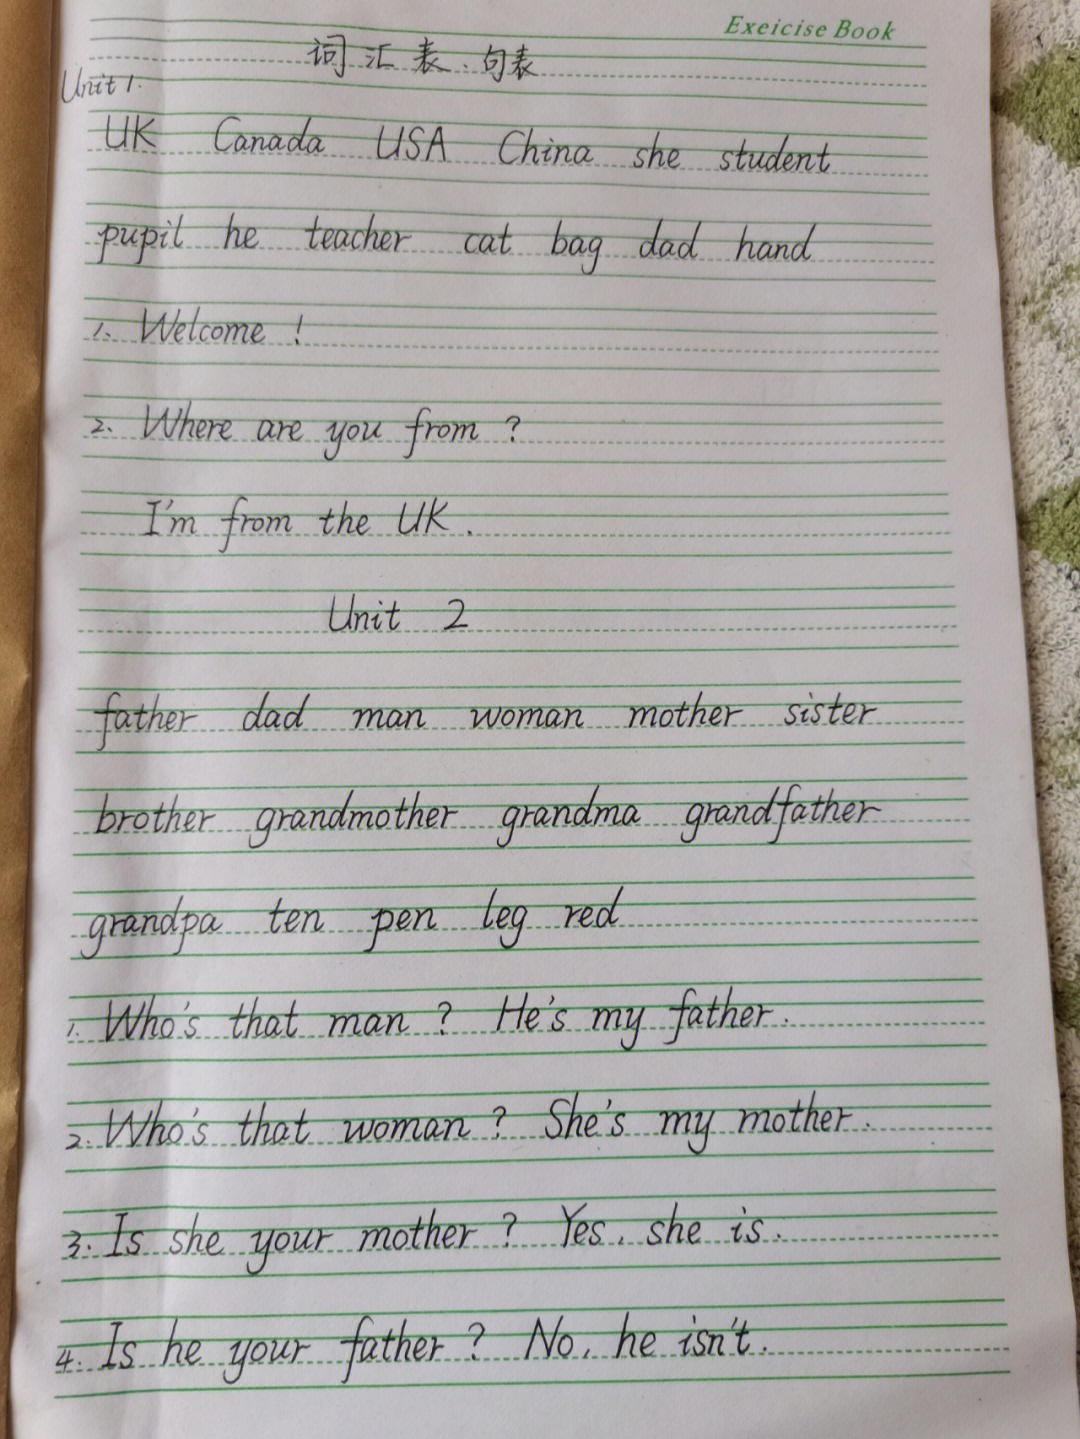 Exeicise Book
词汇表、句表
Unit 1.
UK Canada USA China she student
pupil he teacher cat bag dad hand
1. Welcome !
2. Where are you from ?
I'm from the UK .
Unit 2
father dad man woman mother sister
brother grandmother grandma grandfather
grandpa ten pen leg red
1. Who's that man ? He's my father.
2. Who's that woman ? She's my mother.
3. Is she your mother ? Yes, she is.
4. Is he your father ? No, he isn't.